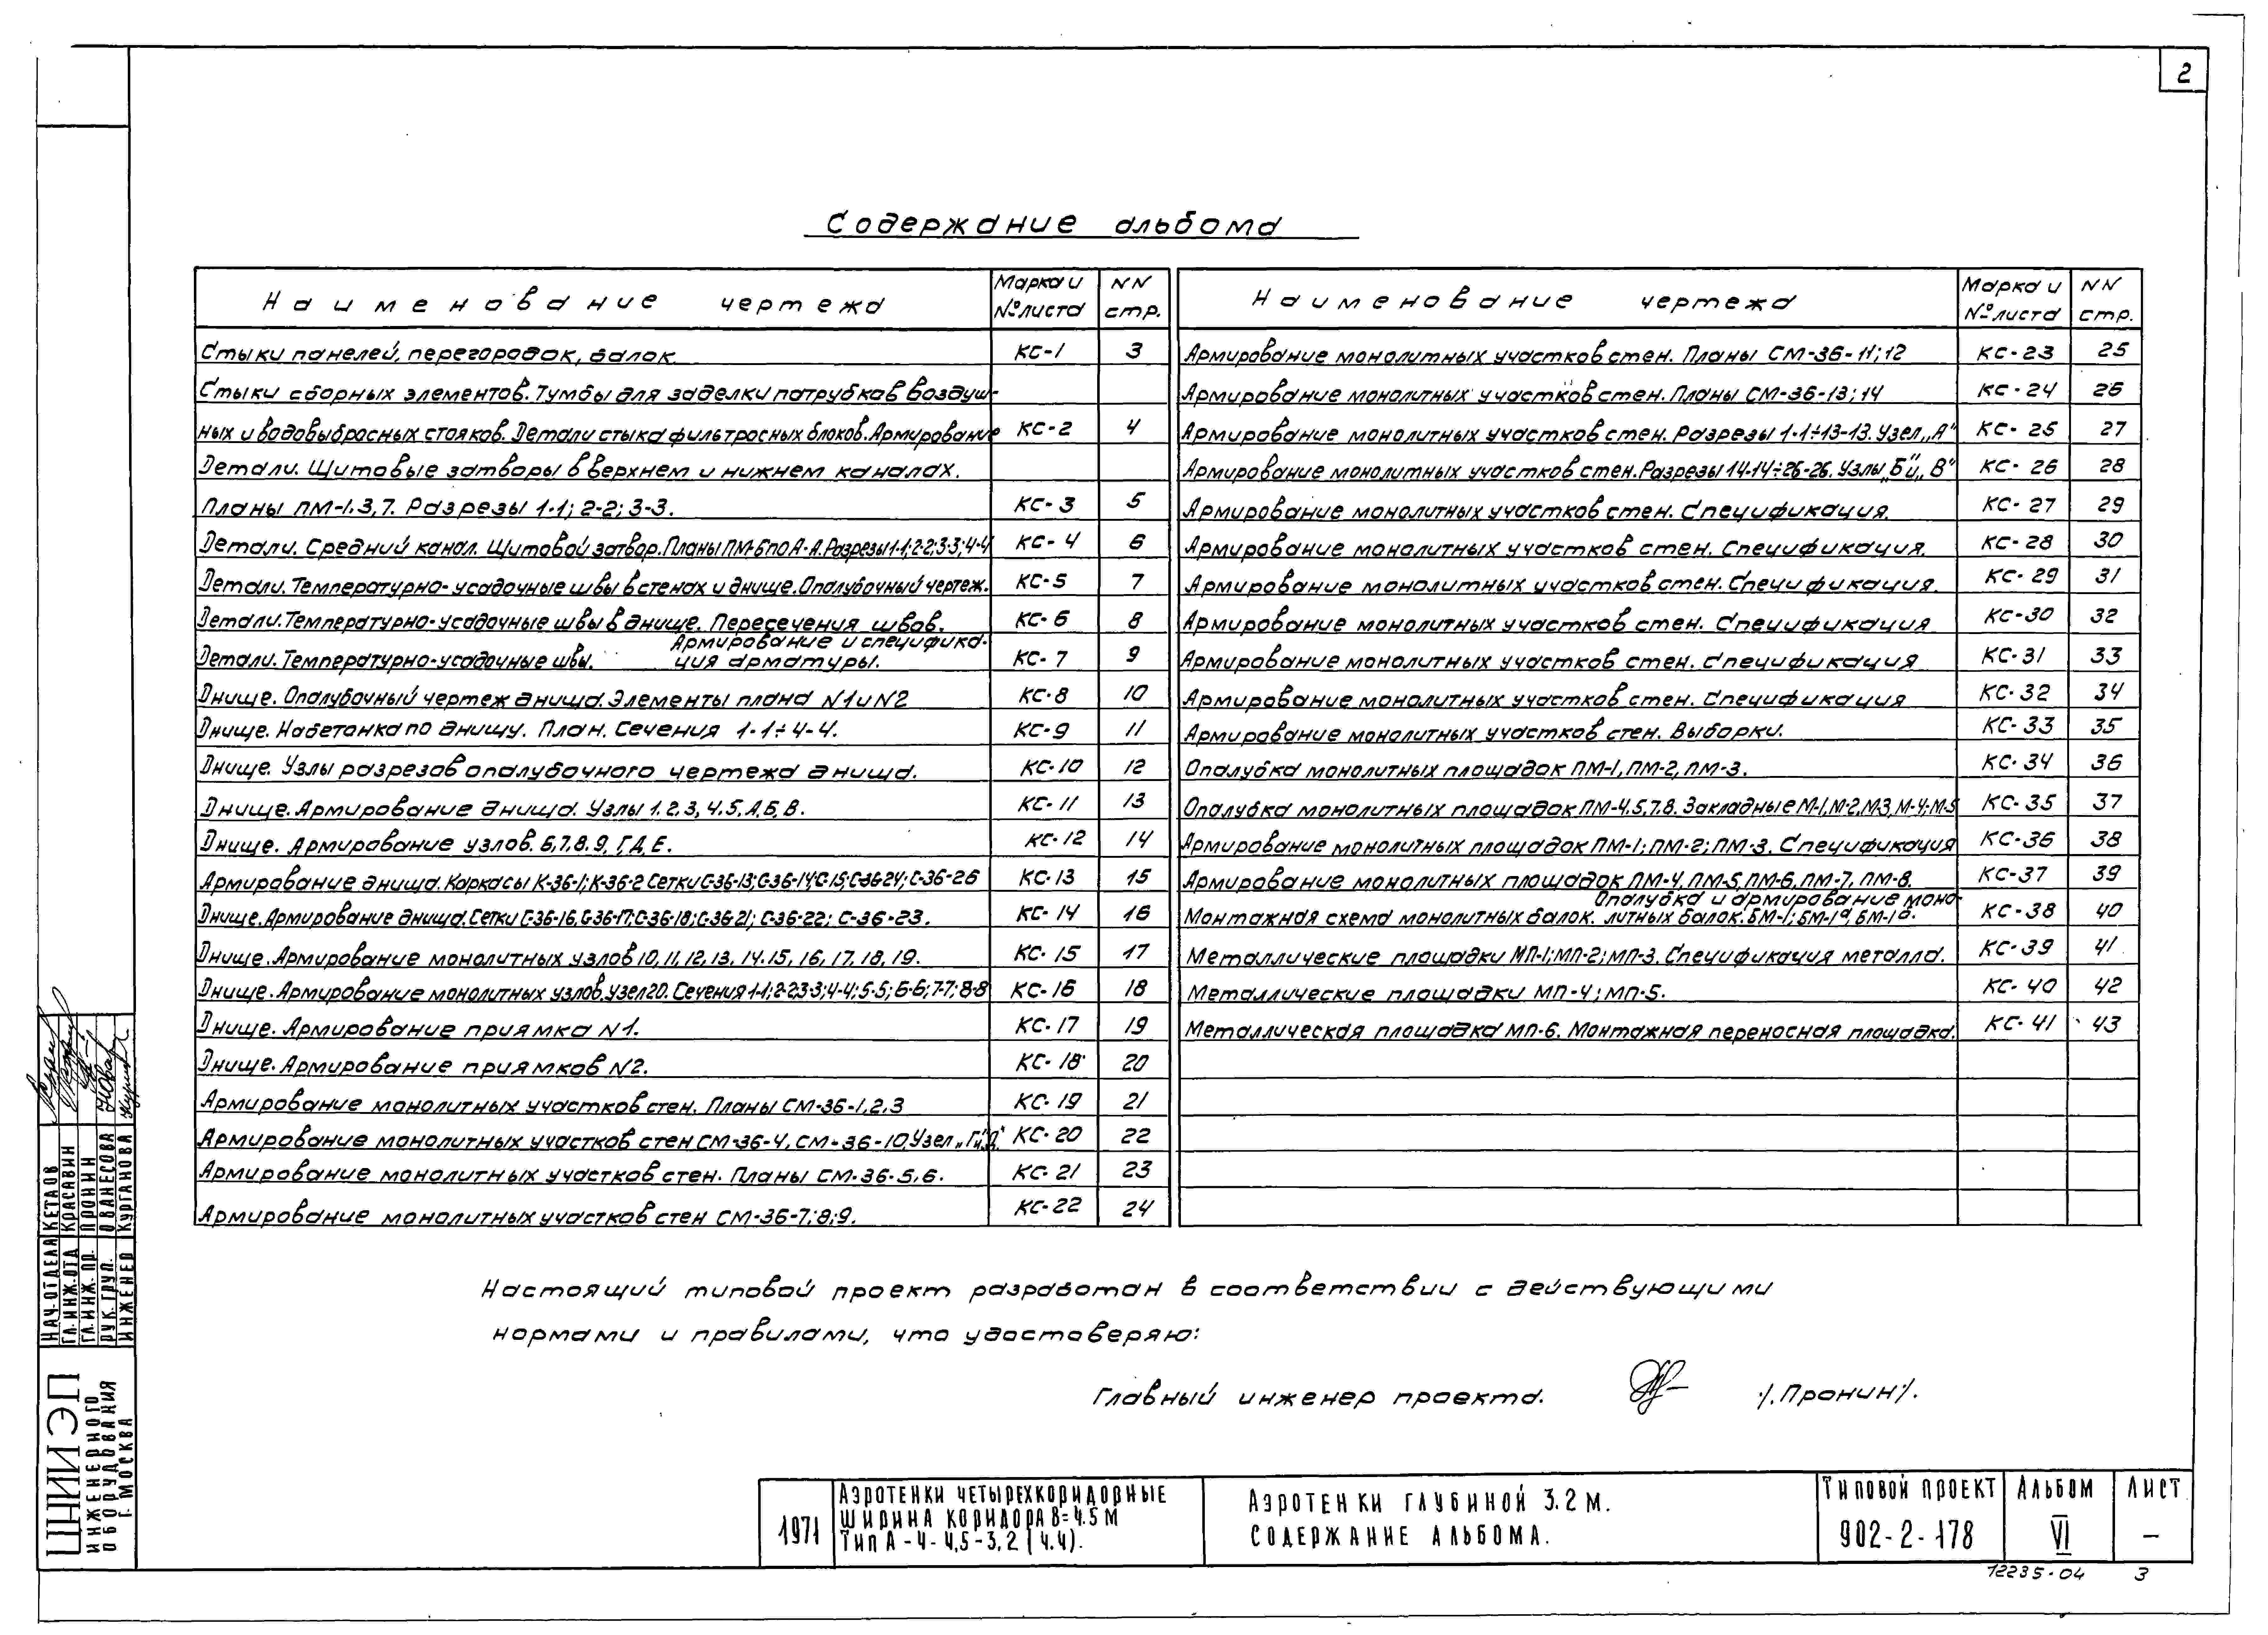 2
Содержание альбома
Наименование чертежа
Марка и № листа
NN стр.
Стыки панелей, перегородок, балок. КС-1 3
Стыки сборных элементов. Тумбы для заделки патрубков воздуш-
ных и водовыбросных стояков. Детали стыка фильтросных блоков. Армирование КС-2 4
Детали. Щитовые затворы в верхнем и нижнем каналах.
Планы ПМ-1,3,7. Разрезы 1-1; 2-2; 3-3. КС-3 5
Детали. Средний канал. Щитовой затвор. Планы ПМ-6 по А-А. Разрезы 1-1; 2-2; 3-3; 4-4 КС-4 6
Детали. Температурно-усадочные швы в стенах и днище. Опалубочный чертеж. КС-5 7
Детали. Температурно-усадочные швы в днище. Пересечения швов. КС-6 8
Детали. Температурно-усадочные швы. Армирование и специфика-
ция арматуры. КС-7 9
Днище. Опалубочный чертеж днища. Элементы плана N1 и N2 КС-8 10
Днище. Набетонка по днищу. План. Сечения 1-1÷4-4. КС-9 11
Днище. Узлы разрезов опалубочного чертежа днища. КС-10 12
Днище. Армирование днища. Узлы 1,2,3,4,5,А,Б,В. КС-11 13
Днище. Армирование узлов. 6,7,8,9,Г,Д,Е. КС-12 14
Армирование днища. Каркасы К-36-1; К-36-2 Сетки С-36-13; С-36-14; С-15; С-36-24; С-36-26 КС-13 15
Днище. Армирование днища. Сетки С-36-16, С-36-17; С-36-18; С-36-21; С-36-22; С-36-23. КС-14 16
Днище. Армирование монолитных узлов 10, 11, 12, 13, 14, 15, 16, 17, 18, 19. КС-15 17
Днище. Армирование монолитных узлов. Узел 20. Сечения 1-1; 2-2 3-3; 4-4; 5-5; 6-6; 7-7; 8-8 КС-16 18
Днище. Армирование приямка N1. КС-17 19
Днище. Армирование приямков N2. КС-18 20
Армирование монолитных участков стен. Планы СМ-36-1,2,3 КС-19 21
Армирование монолитных участков стен СМ-36-4, СМ-36-10, Узел „Г" и „Д" КС-20 22
Армирование монолитных участков стен. Планы СМ-36-5,6. КС-21 23
Армирование монолитных участков стен СМ-36-7;8;9. КС-22 24
Наименование чертежа
Марка и № листа
NN стр.
Армирование монолитных участков стен. Планы СМ-36-11;12 КС-23 25
Армирование монолитных участков стен. Планы СМ-36-13;14 КС-24 26
Армирование монолитных участков стен. Разрезы 1-1÷13-13. Узел „А" КС-25 27
Армирование монолитных участков стен. Разрезы 14-14÷26-26. Узлы „Б" и „В" КС-26 28
Армирование монолитных участков стен. Спецификация. КС-27 29
Армирование монолитных участков стен. Спецификация. КС-28 30
Армирование монолитных участков стен. Спецификация. КС-29 31
Армирование монолитных участков стен. Спецификация КС-30 32
Армирование монолитных участков стен. Спецификация КС-31 33
Армирование монолитных участков стен. Спецификация КС-32 34
Армирование монолитных участков стен. Выборки. КС-33 35
Опалубка монолитных площадок ПМ-1, ПМ-2, ПМ-3. КС-34 36
Опалубка монолитных площадок ПМ-4,5,7,8. Закладные М-1, М-2, М-3, М-4; М-5 КС-35 37
Армирование монолитных площадок ПМ-1; ПМ-2; ПМ-3. Спецификация КС-36 38
Армирование монолитных площадок ПМ-4, ПМ-5, ПМ-6, ПМ-7, ПМ-8. КС-37 39
Монтажная схема монолитных балок. Опалубка и армирование моно-
литных балок. БМ-1; БМ-1а, БМ-1б. КС-38 40
Металлические площадки МП-1; МП-2; МП-3. Спецификация металла. КС-39 41
Металлические площадки МП-4; МП-5. КС-40 42
Металлическая площадка МП-6. Монтажная переносная площадка. КС-41 43
Настоящий типовой проект разработан в соответствии с действующими
нормами и правилами, что удостоверяю:
Главный инженер проекта. /.Пронин/.
НАЧ. ОТДЕЛА КЕТАОВ
ГЛ. ИНЖ. ОТД КРАСАВИН
ГЛ. ИНЖ. ПР. ПРОНИН
РУК. ГРУП. ОВАНЕСОВА
ИНЖЕНЕР КУРГАНОВА
ЦНИИЭП
ИНЖЕНЕРНОГО
ОБОРУДОВАНИЯ
Г. МОСКВА
1971
АЭРОТЕНКИ ЧЕТЫРЕХКОРИДОРНЫЕ
ШИРИНА КОРИДОРА В=4.5М
ТИП А-4-4,5-3,2 (4.4).
АЭРОТЕНКИ ГЛУБИНОЙ 3.2 М.
СОДЕРЖАНИЕ АЛЬБОМА.
ТИПОВОЙ ПРОЕКТ
902-2-178
АЛЬБОМ
VI
ЛИСТ
—
12235-04 3